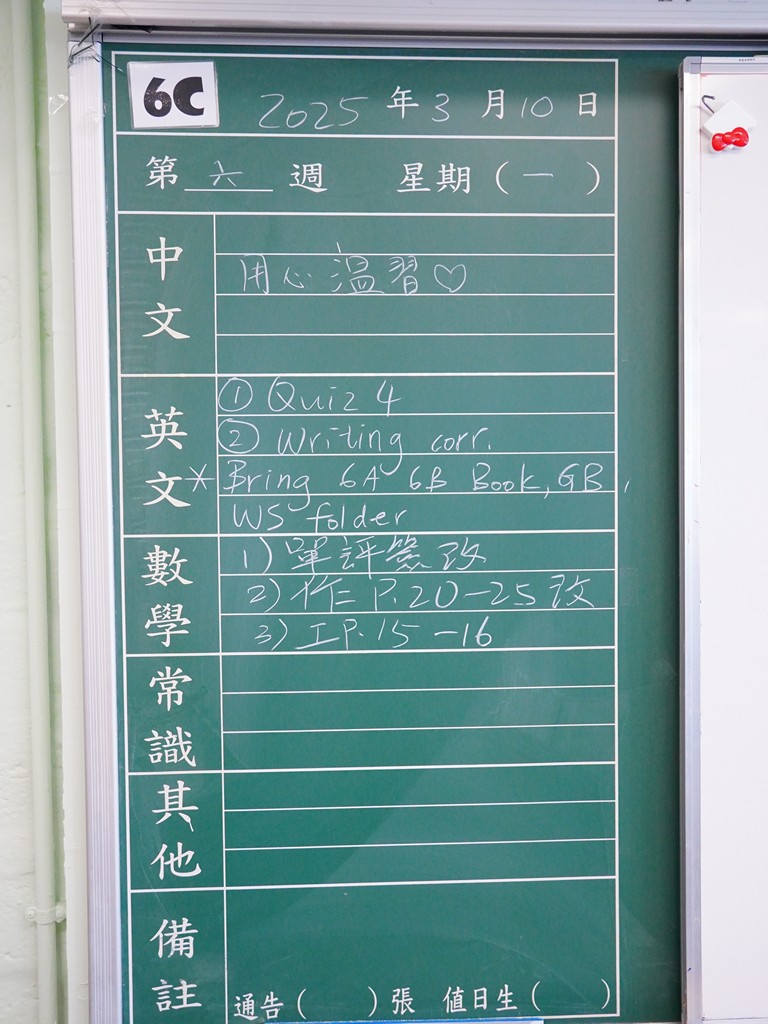 6C 2025年3月10日
第六週 星期(一)
中文
用心溫習♡
英文
① Quiz 4
② Writing corr.
* Bring 6A 6B Book, GB,
WS folder
數學
1) 單評簽改
2) 作 P.20-25改
3) 工P.15-16
常識
其他
備註
通告( )張 值日生( )